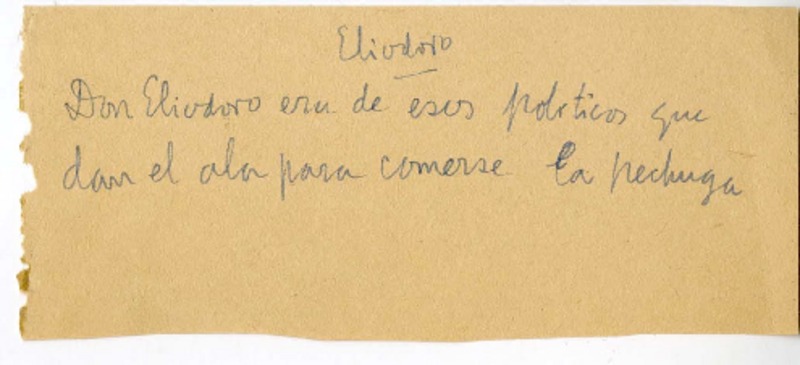 Eliodoro
Don Eliodoro era de esos políticos que
dan el ala para comerse la pechuga